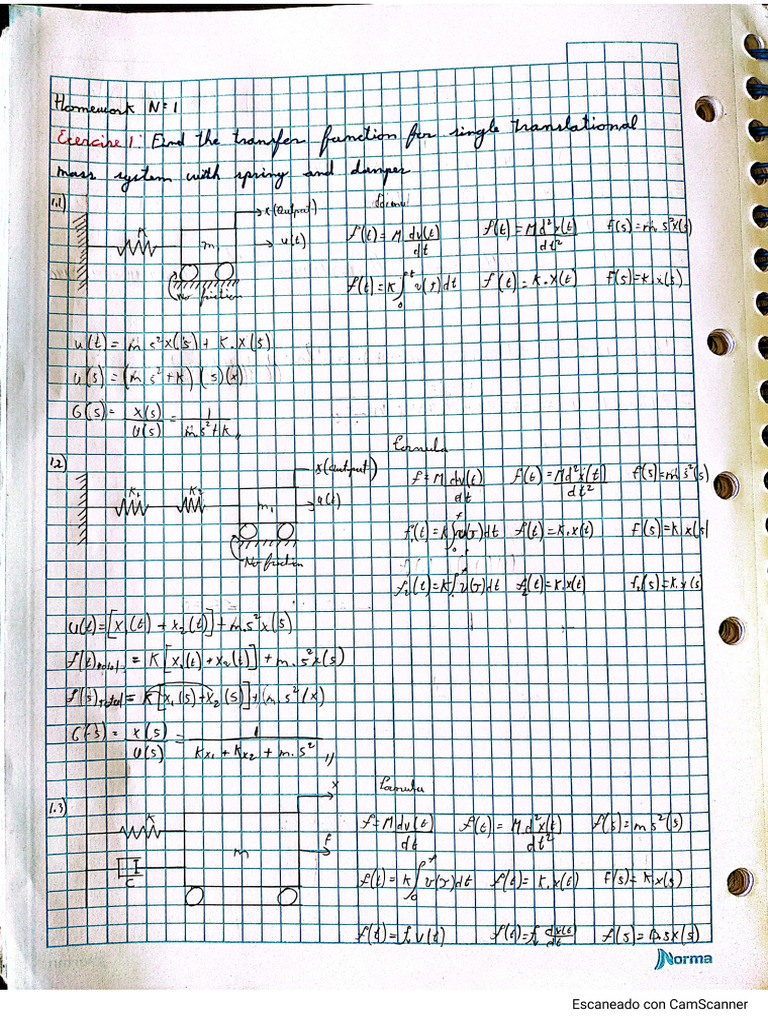 Homework N=1
Exercise 1: Find the transfer function for single translational
mass system with spring and damper
1.1)
x(Output)
K
m
u(t)
No friction
f(t)=M dv(t)/dt f(t)=M d²x(t)/dt² F(s)=m s²x(s)
f(t)=K∫₀ᵗ v(τ)dt f(t)=K.x(t) F(s)=K.x(s)
u(t)=m s²x(s)+K.x(s)
u(s)=(m s²+K)(s)(x)
G(s)= x(s)/U(s) = 1/m s²+k
1.2)
x(output)
K₁ K₂ m₁ u(t)
No friction
formula
f=M dv(t)/dt f(t)=M d²x(t)/dt² f(s)=m s²(s)
f(t)=K∫v(τ)dt f(t)=K.x(t) F(s)=K.x(s)
f₂(t)=K∫v(τ)dt f₂(t)=K.x(t) f₂(s)=K.x(s)
u(t)=[x₁(t)+x₂(t)]+m.s²x(s)
f(t)total=K[x₁(t)+x₂(t)]+m.s²x(s)
f(s)total=K[x₁(s)+x₂(s)]+(m s²(x)
G(s)= x(s)/U(s) = 1/Kx₁+Kx₂+m.s²
1.3)
x
K
m
F
C
formula
f=M dv(t)/dt f(t)=M d²x(t)/dt² f(s)=ms²(s)
f(t)=K∫v(τ)dt f(t)=K.x(t) F(s)=K x(s)
f(t)=fᵥ V(t) f(t)=fᵥ dx(t)/dt f(s)=BsX(s)
Norma
Escaneado con CamScanner